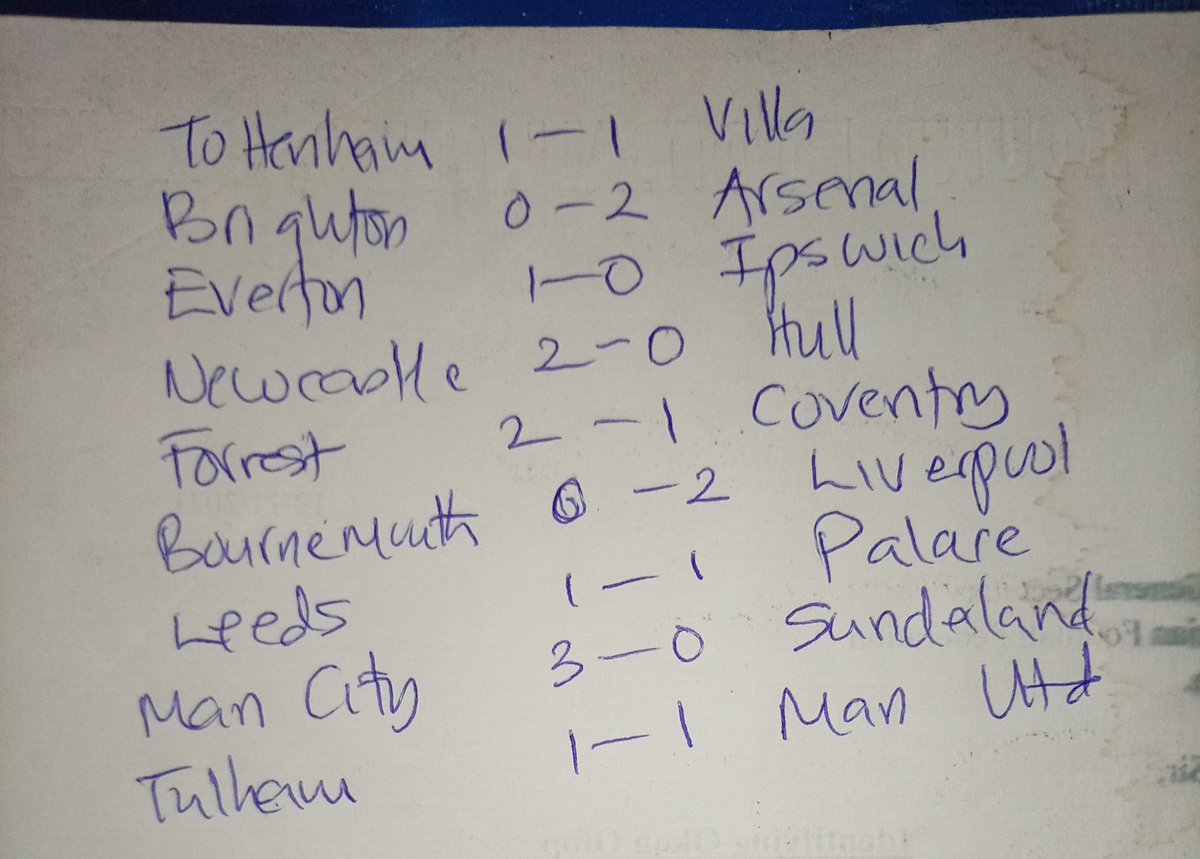 Tottenham 1 - 1 Villa
Brighton 0 - 2 Arsenal
Everton 1 - 0 Ipswich
Newcastle 2 - 0 Hull
Forrest 2 - 1 Coventry
Bournemouth 0 - 2 Liverpool
Leeds 1 - 1 Palace
Man City 3 - 0 Sunderland
Fulham 1 - 1 Man Utd